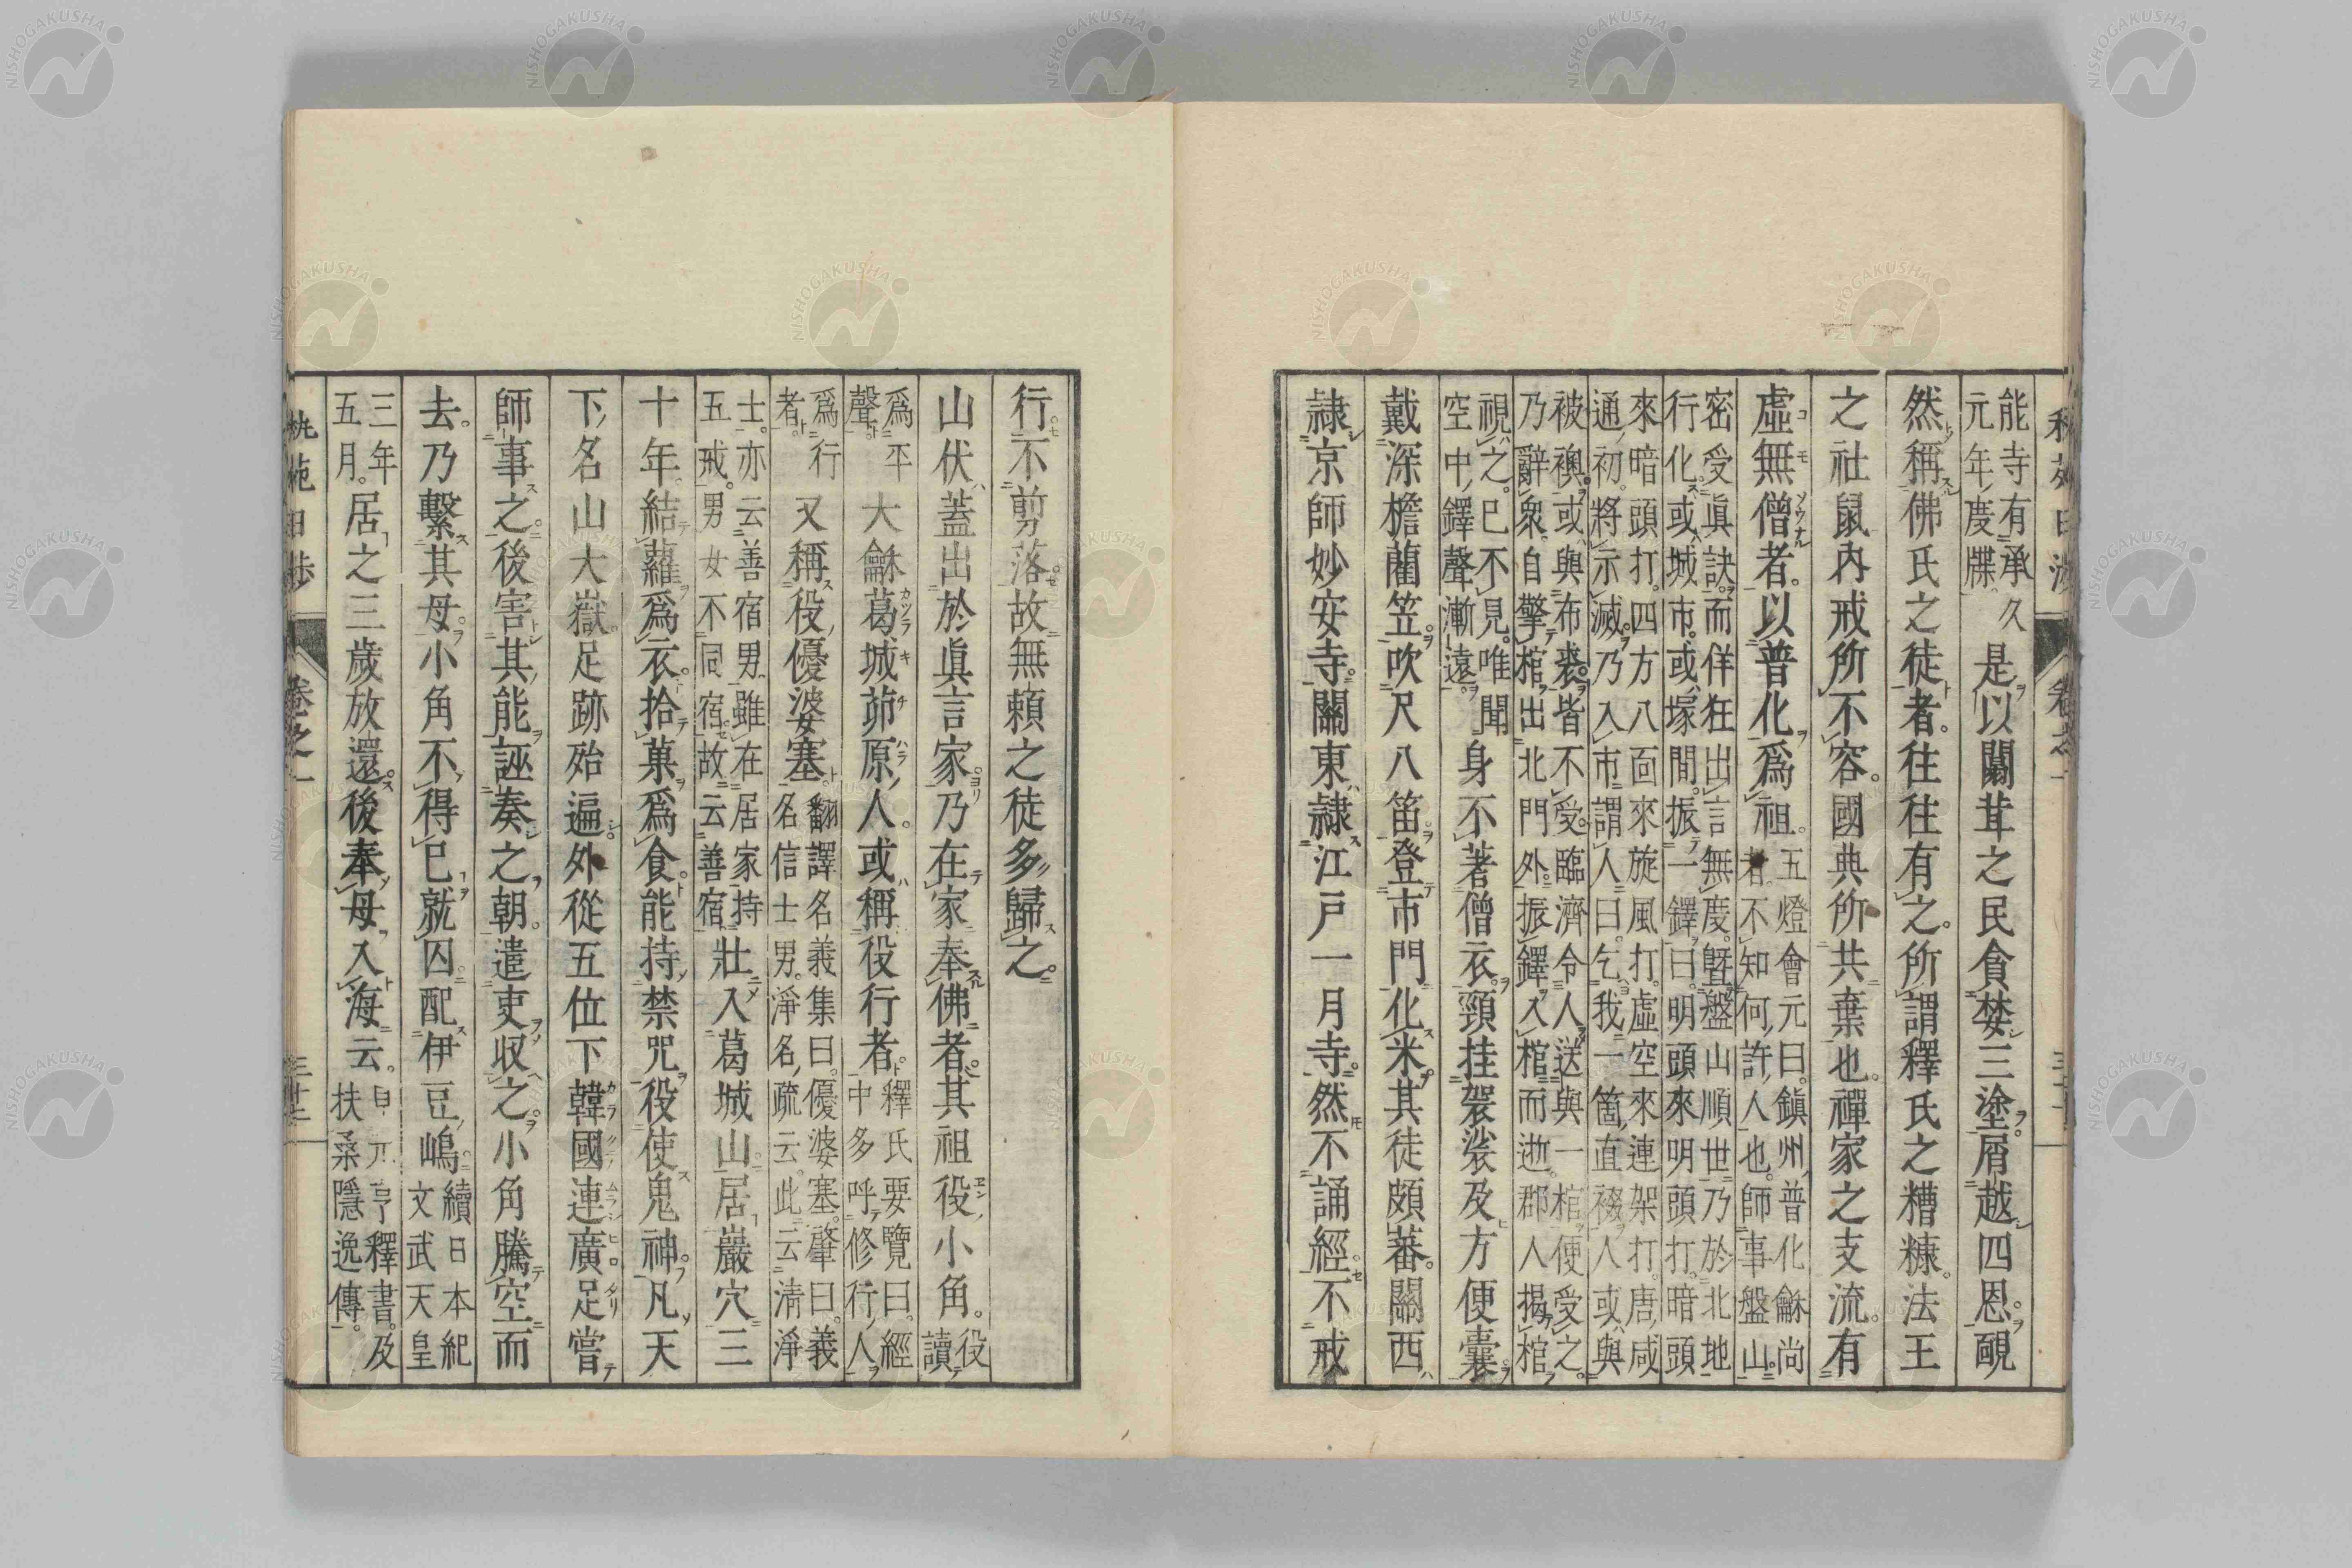 能寺有承久
元年度牒。是以闒茸之民貪婪三塗屑越四恩。靦
然稱佛氏之徒者。往往有之。所謂釋氏之糟糠。法王
之社鼠內戒所不容。國典所共棄也。禪家之支流。有
虛無僧者。以普化爲祖。五燈會元曰。鎭州普化龢尚
者。不知何許人也。師事盤山。
密受眞訣。而佯狂出言無度。曁盤山順世。乃於北地
行化。或城市。或塚間。振一鐸曰。明頭來明頭打。暗頭
來暗頭打。四方八面來旋風打。虛空來連架打。唐咸
通初。將示滅。乃入市。謂人曰。乞我一箇直裰。人或與
被襖。或與布裘。皆不受。臨濟令人送與一棺。便受之。
乃辭衆。自擎棺出北門外。振鐸入棺而逝。郡人揭棺
視之。已不見。唯聞
空中鐸聲漸遠。身不著僧衣。頸挂袈裟及方便囊。
戴深檐藺笠。吹尺八笛。登市門化米。其徒頗蕃。關西
隸京師妙安寺。關東隸江戸一月寺。然不誦經。不戒
行。不剪落。故無賴之徒多歸之。
山伏蓋出於眞言家。乃在家奉佛者。其祖役小角。役
讀
爲平
聲。大龢葛城茆原人。或稱役行者。釋氏要覽曰。經
中多呼修行人
爲行
者。又稱役優婆塞。翻譯名義集曰。優婆塞。肇曰。義
名信士男。淨名疏云。此云清淨
士。亦云善宿男。雖在居家持
五戒。男女不同宿。故云善宿。壯入葛城山。居巖穴三
十年。結蘿爲衣。拾菓爲食。能持禁咒。役使鬼神。凡天
下名山大嶽。足跡殆遍。外從五位下韓國連廣足嘗
師事之。後害其能。誣奏之朝。遣吏收之。小角騰空而
去。乃繫其母。小角不得已就囚。配伊豆嶋。續日本紀
文武天皇
三年
五月。居之三歲放還。後奉母入海云。釋書。及
扶桑隱逸傳。